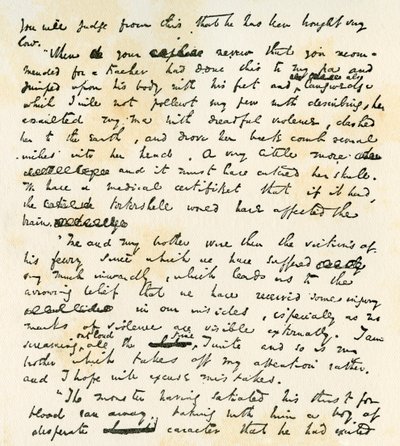 you will judge from this that he has been brought very
low.
"When your nevew that you recom-
mended for a teacher had done this to my pa and
jumped upon his body with his feet and langwedge
which I will not pollewt my pen with describing, he
assaulted my ma with dreadful violence, dashed
her to the earth, and drove her back comb several
inches into her head. A very little more
and it must have entered her skull.
We have a medical certifiket that if it had,
the tortershell would have affected the
brain.
"Me and my brother were then the victims of
his feury since which we have suffered
very much inwardly, which leads us to the
arrowing belief that we have received some injury
in our insides, especially as no
marks of violence are visible externally. I am
screaming out loud all the time I write and so is my
brother which takes off my attention rather,
and I hope will excuse mistakes.
"The monster having satiated his thirst for
blood ran away, taking with him a boy of
desperate caracter that he had excited